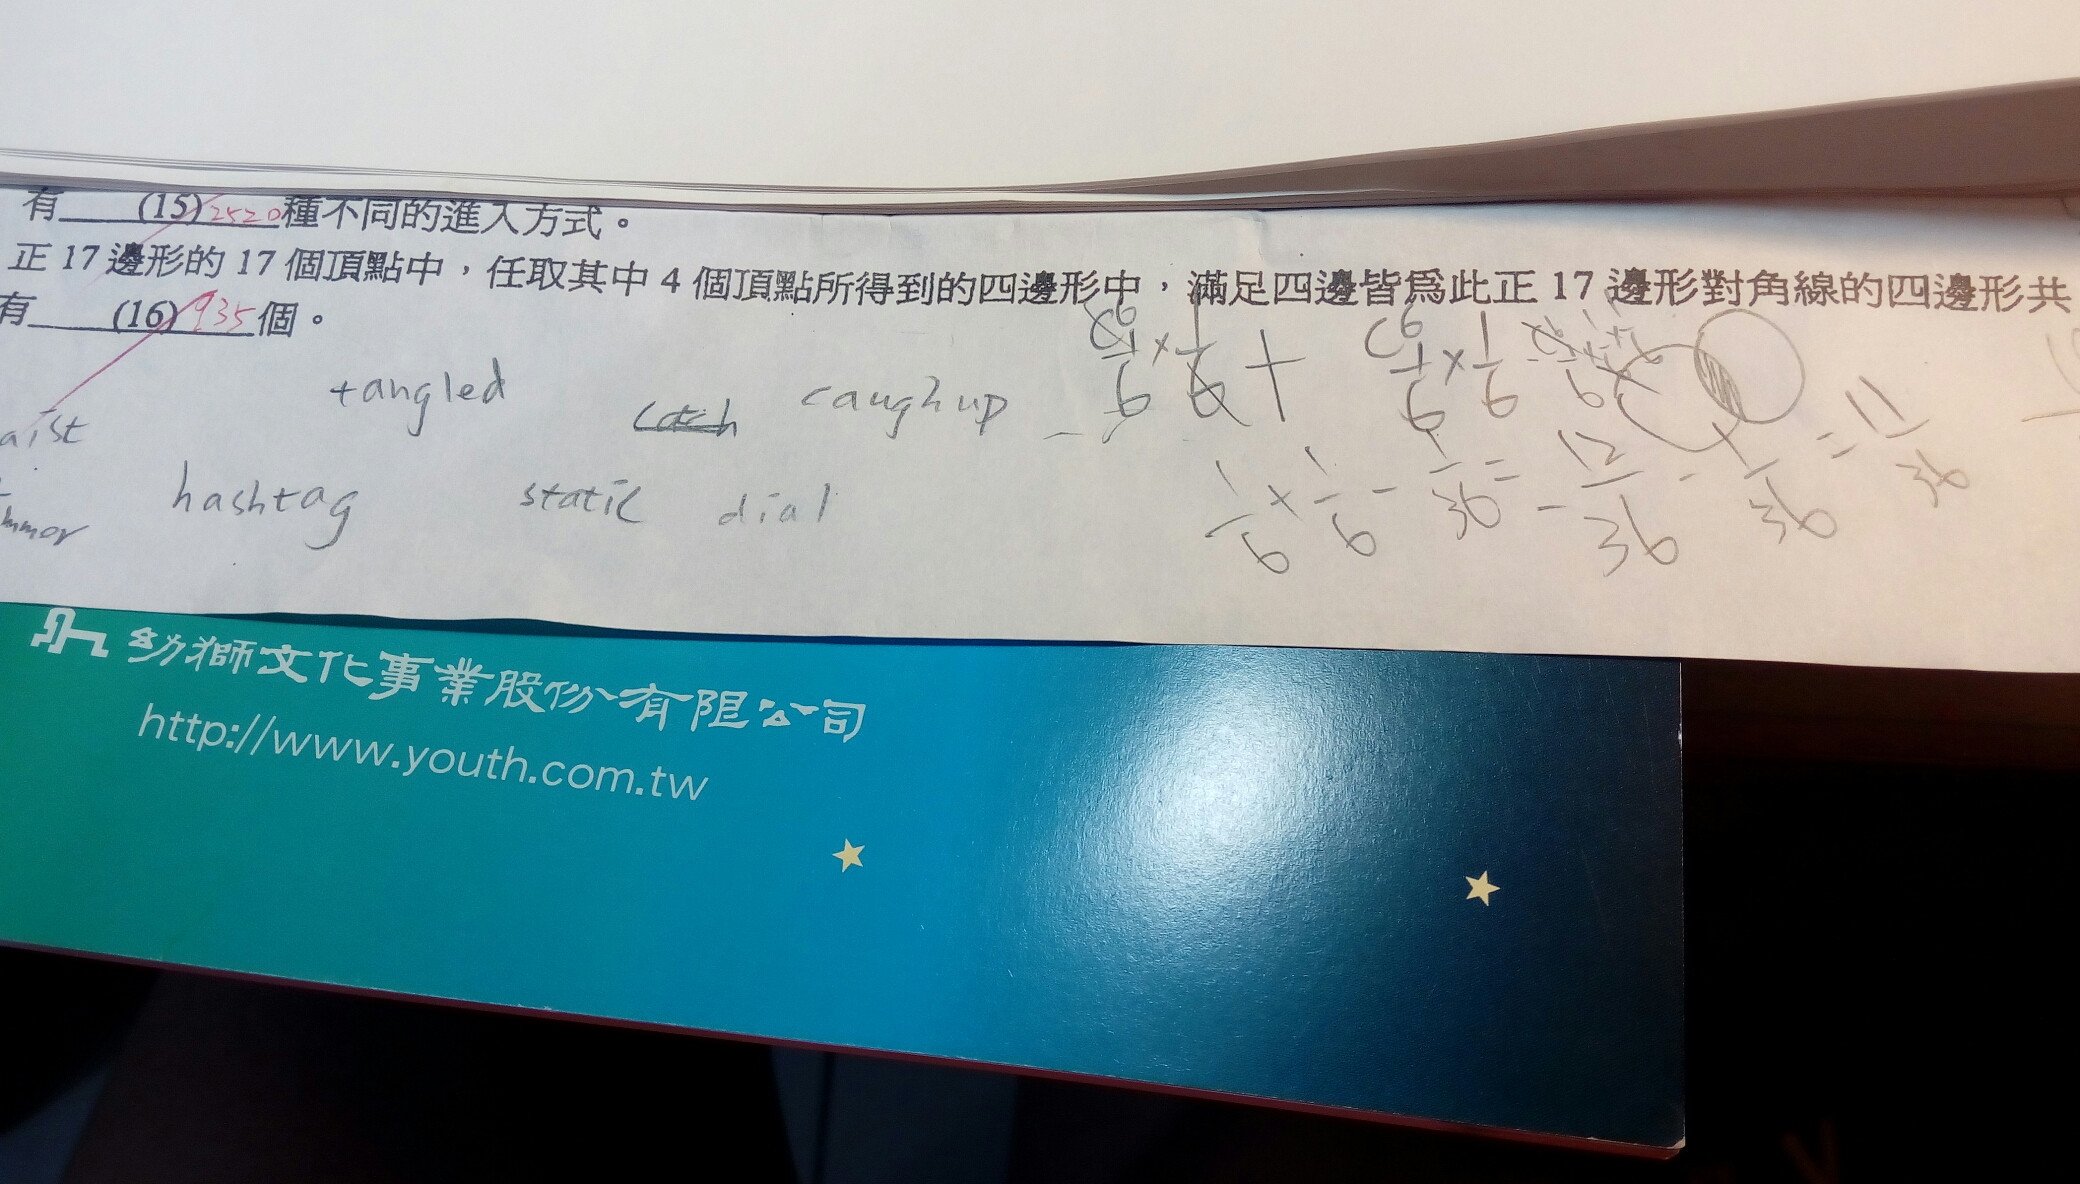 有 (15) 2520 種不同的進入方式。
正 17 邊形的 17 個頂點中，任取其中 4 個頂點所得到的四邊形中，滿足四邊皆為此正 17 邊形對角線的四邊形共
有 (16) 935 個。
tangled catch caughup
aist
hashtag static dial
C6 1/6 × 1/6 + C6 1/6 × 1/6
1/6 × 1/6 - 1/36 = 12/36 - 1/36 = 11/36
幼獅文化事業股份有限公司
http://www.youth.com.tw